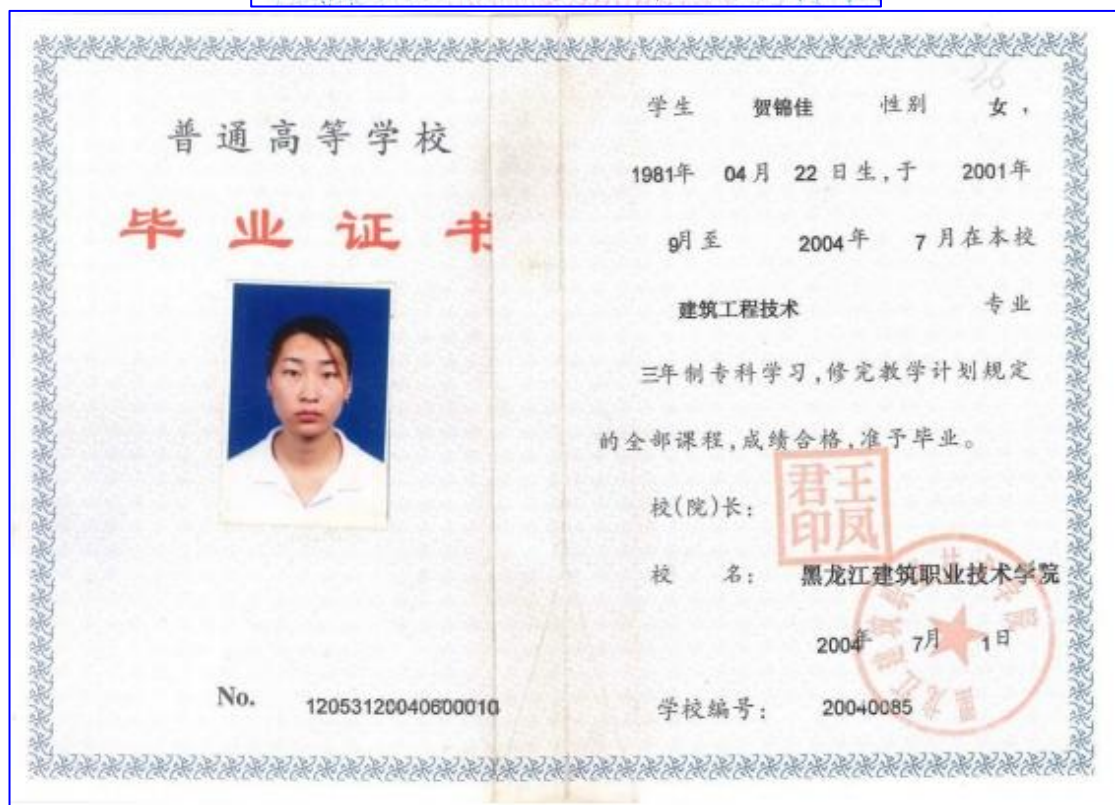 普通高等学校
毕业证书
No. 12053120040600010
学生 贺锦佳 性别 女，
1981年 04月 22日生，于 2001年
9月至 2004年 7月在本校
建筑工程技术 专业
三年制专科学习，修完教学计划规定
的全部课程，成绩合格，准予毕业。
校(院)长：
王凤君印
校 名： 黑龙江建筑职业技术学院
2004年 7月 1日
学校编号： 20040085
黑龙江建筑职业技术学院
36